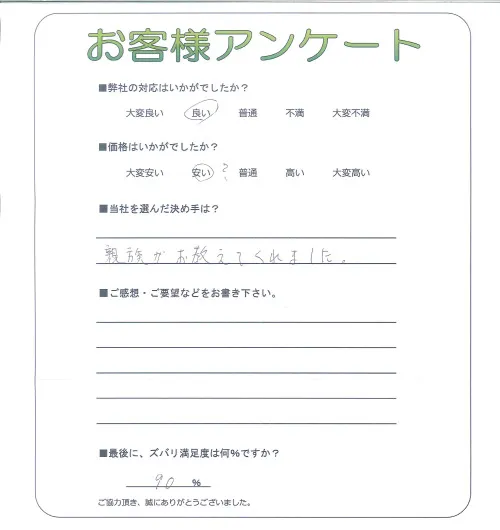 お客様アンケート
■弊社の対応はいかがでしたか？
大変良い 良い 普通 不満 大変不満
■価格はいかがでしたか？
大変安い 安い ? 普通 高い 大変高い
■当社を選んだ決め手は？
親族がお教えてくれました。
■ご感想・ご要望などをお書き下さい。
■最後に、ズバリ満足度は何％ですか？
90 %
ご協力頂き、誠にありがとうございました。